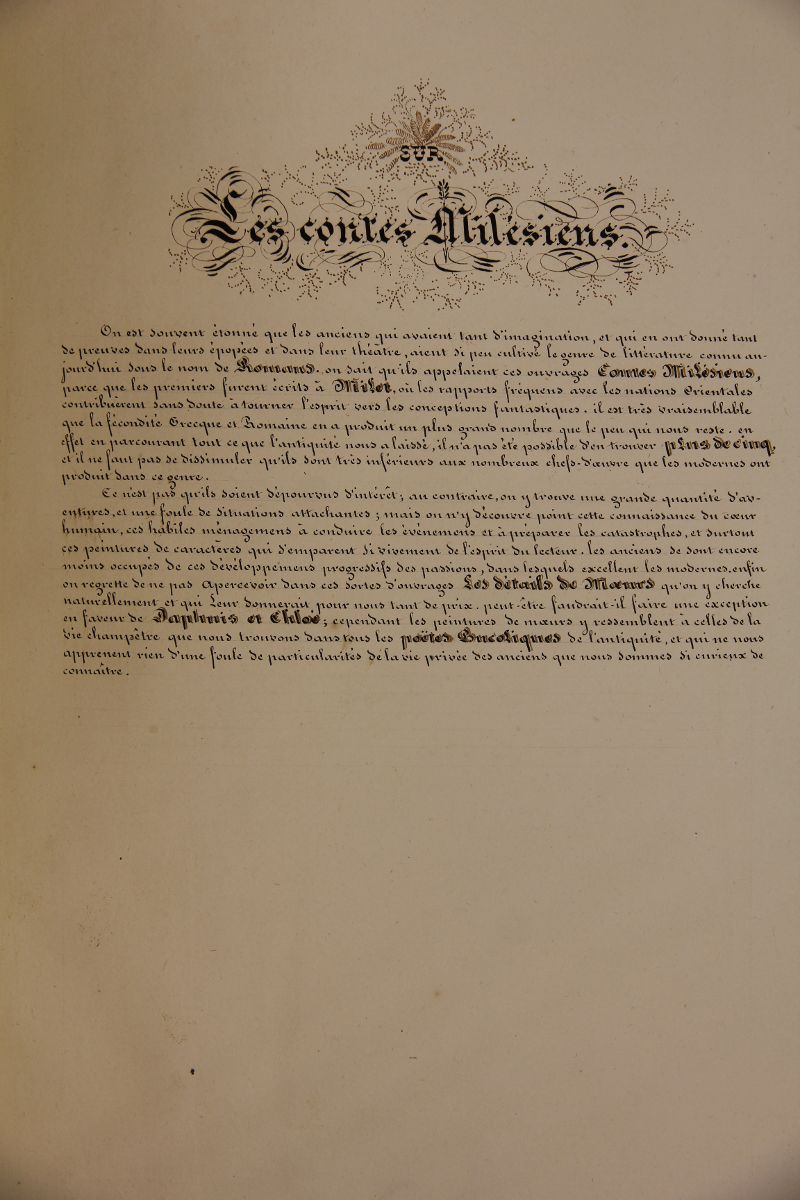 SUR
Les contes Milésiens.
On est souvent étonné que les anciens qui avaient tant d'imagination, et qui en ont donné tant
de preuves dans leurs épopées et dans leur théatre, aient si peu cultivé le genre de littérature connu au-
jourd'hui sous le nom de Romans. on sait qu'ils appelaient ces ouvrages Contes Milésiens,
parce que les premiers furent écrits à Milet, où les rapports fréquens avec les nations Orientales
contribuèrent sans doute à tourner l'esprit vers les conceptions fantastiques. il est très vraisemblable
que la fécondité Grecque et Romaine en a produit un plus grand nombre que le peu qui nous reste. en
effet en parcourant tout ce que l'antiquité nous a laissé, il n'a pas été possible d'en trouver plus de cinq,
et il ne faut pas se dissimuler qu'ils sont très inférieurs aux nombreux chefs-d'œuvre que les modernes ont
produit dans ce genre.
Ce n'est pas qu'ils soient dépourvus d'intérêt; au contraire, on y trouve une grande quantité d'av-
entures, et une foule de situations attachantes; mais on n'y découvre point cette connaissance du cœur
humain, ces habiles ménagemens à conduire les évènemens et à préparer les catastrophes, et surtout
ces peintures de caractères qui s'emparent si vivement de l'esprit du lecteur. les anciens se sont encore
moins occupés de ces développemens progressifs des passions, dans lesquels excellent les modernes. enfin
on regrette de ne pas apercevoir dans ces sortes d'ouvrages Les détails de Mœurs qu'on y cherche
naturellement et qui leur donnerait pour nous tant de prix. peut-être faudrait-il faire une exception
en faveur de Daphnis et Chloé; cependant les peintures de mœurs y ressemblent à celles de la
vie champêtre que nous trouvons dans tous les poëtes Bucoliques de l'antiquité, et qui ne nous
apprenent rien d'une foule de particularités de la vie privée des anciens que nous sommes si curieux de
connaître.